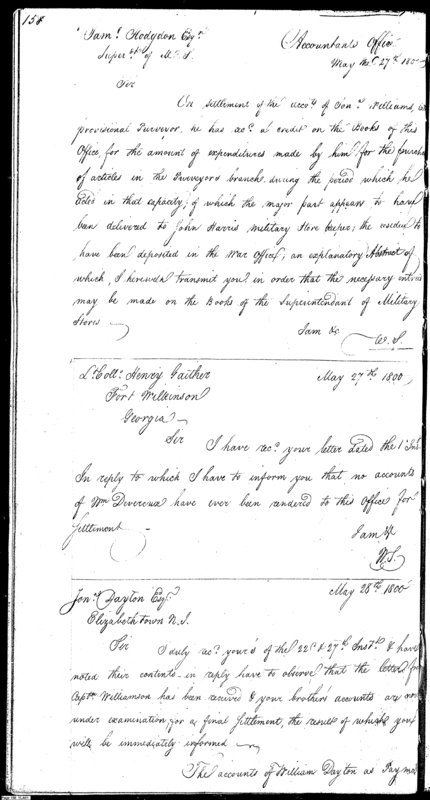 158
Saml. Hodgdon Esqr. Accountants Office
Super. of M. S. May the 27th. 1800
Sir
On settlement of the accot. of Jonn. Williams,
provisional Purveyor, he has recd. a credit on the Books of this
Office for the amount of expenditures made by him for the purchase
of articles in the Purveyors branch during the period which he
acted in that capacity; of which the major part appears to have
been delivered to John Harris Military Store keeper; the residue to
have been deposited in the War Office; an explanatory Abstract of
which, I herewith transmit you in order that the necessary entries
may be made on the Books of the Superintendant of Military
Stores
I am &c
W. S.
Lt. Coll. Henry Gaither May 27th. 1800
Fort Wilkinson
Georgia
Sir
I have recd. your letter dated the 1st. Inst
In reply to which I have to inform you that no accounts
of Wm Divereux have ever been rendered to this Office for
Settlement
I am &
W. S.
Jonn. Dayton Esqr. May 28th. 1800
Elizabeth town N. J.
Sir I duly recd. your's of the 22d. & 27th. Inst. & have
noted their contents - in reply have to observe, that the letter from
Captn. Williamson has been received & your brother's accounts are now
under examination, for a final settlement, the result of which you
will be immediately informed
The accounts of William Dayton as Paymas